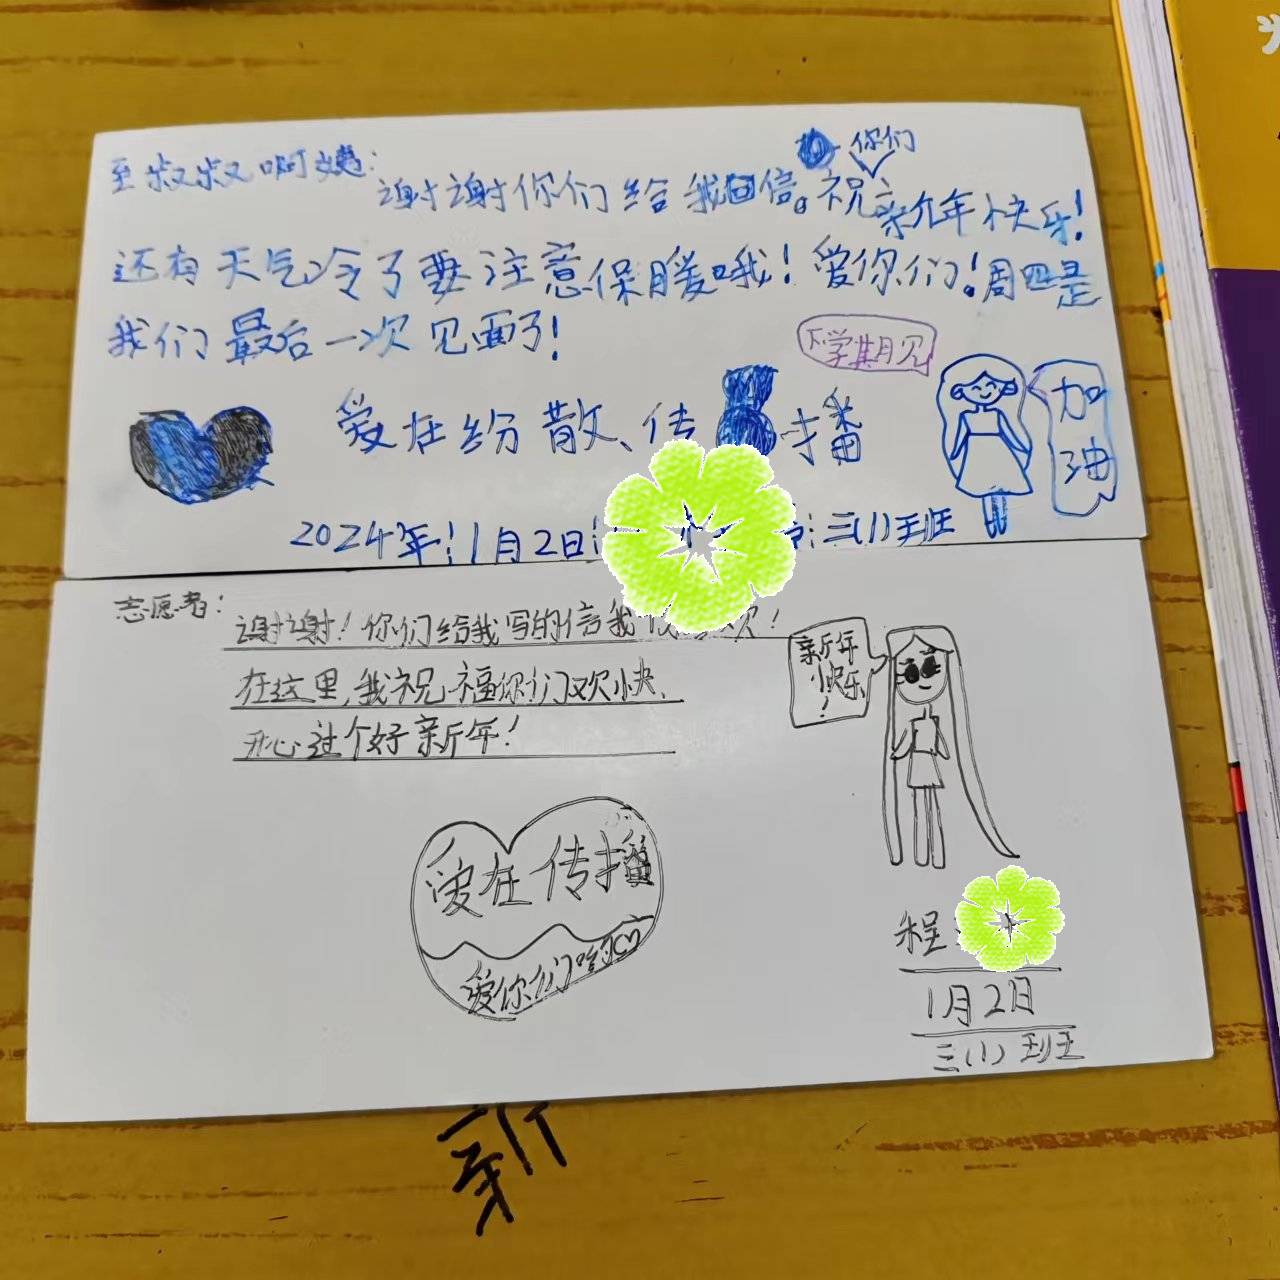 至叔叔啊姨:
你们
谢谢你们给我回信。祝新年快乐!
还有天气冷了要注意保暖哦!爱你们!周四是
我们最后一次见面了!
下学期见
加油
爱在纷散、传播
2024年1月2日 三(1)班
志愿者:
谢谢!你们给我写的信我
在这里,我祝福你们欢快、
开心过个好新年!
新年
快乐
!
爱在传播
爱你们
程
1月2日
三(1)班
新